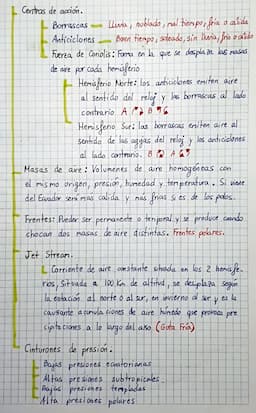 Centros de acción.
Borrascas — Lluvia, nublado, mal tiempo, fría o calida
Anticiclones — Buen tiempo, soleado, sin lluvia, frío o calido
Fuerza de Coriolis: Forma en la que se desplaza las masas
de aire por cada hemisferio
Hemisferio Norte: los anticiclones emiten aire
al sentido del reloj y las borrascas al lado
contrario A B
Hemisferio Sur: las borrascas emiten aire al
sentido de las agujas del reloj y los anticiclones
al lado contrario. B A
Masas de aire: Volumenes de aire homogéneas con
el mismo origen, presión, humedad y temperatura. Si viene
del Ecuador será mas calida y mas frias si es de los polos.
Frentes: Pueden ser permanente o temporal y se produce cuando
chocan dos masas de aire distintas. Frentes polares.
Jet Stream.
Corriente de aire constante situada en los 2 hemisfe-
rios, Situada a 100 Km de altitud, se desplaza según
la estación al norte o al sur, en invierno al sur y es la
causante acumulaciones de aire húmedo que provoca pre
cipitaciones a lo largo del año (Gota Fría)
Cinturones de presión.
Bajas presiones ecuatorianas
Altas presiones subtropicales
Bajas presiones templadas
Alta presiones polares